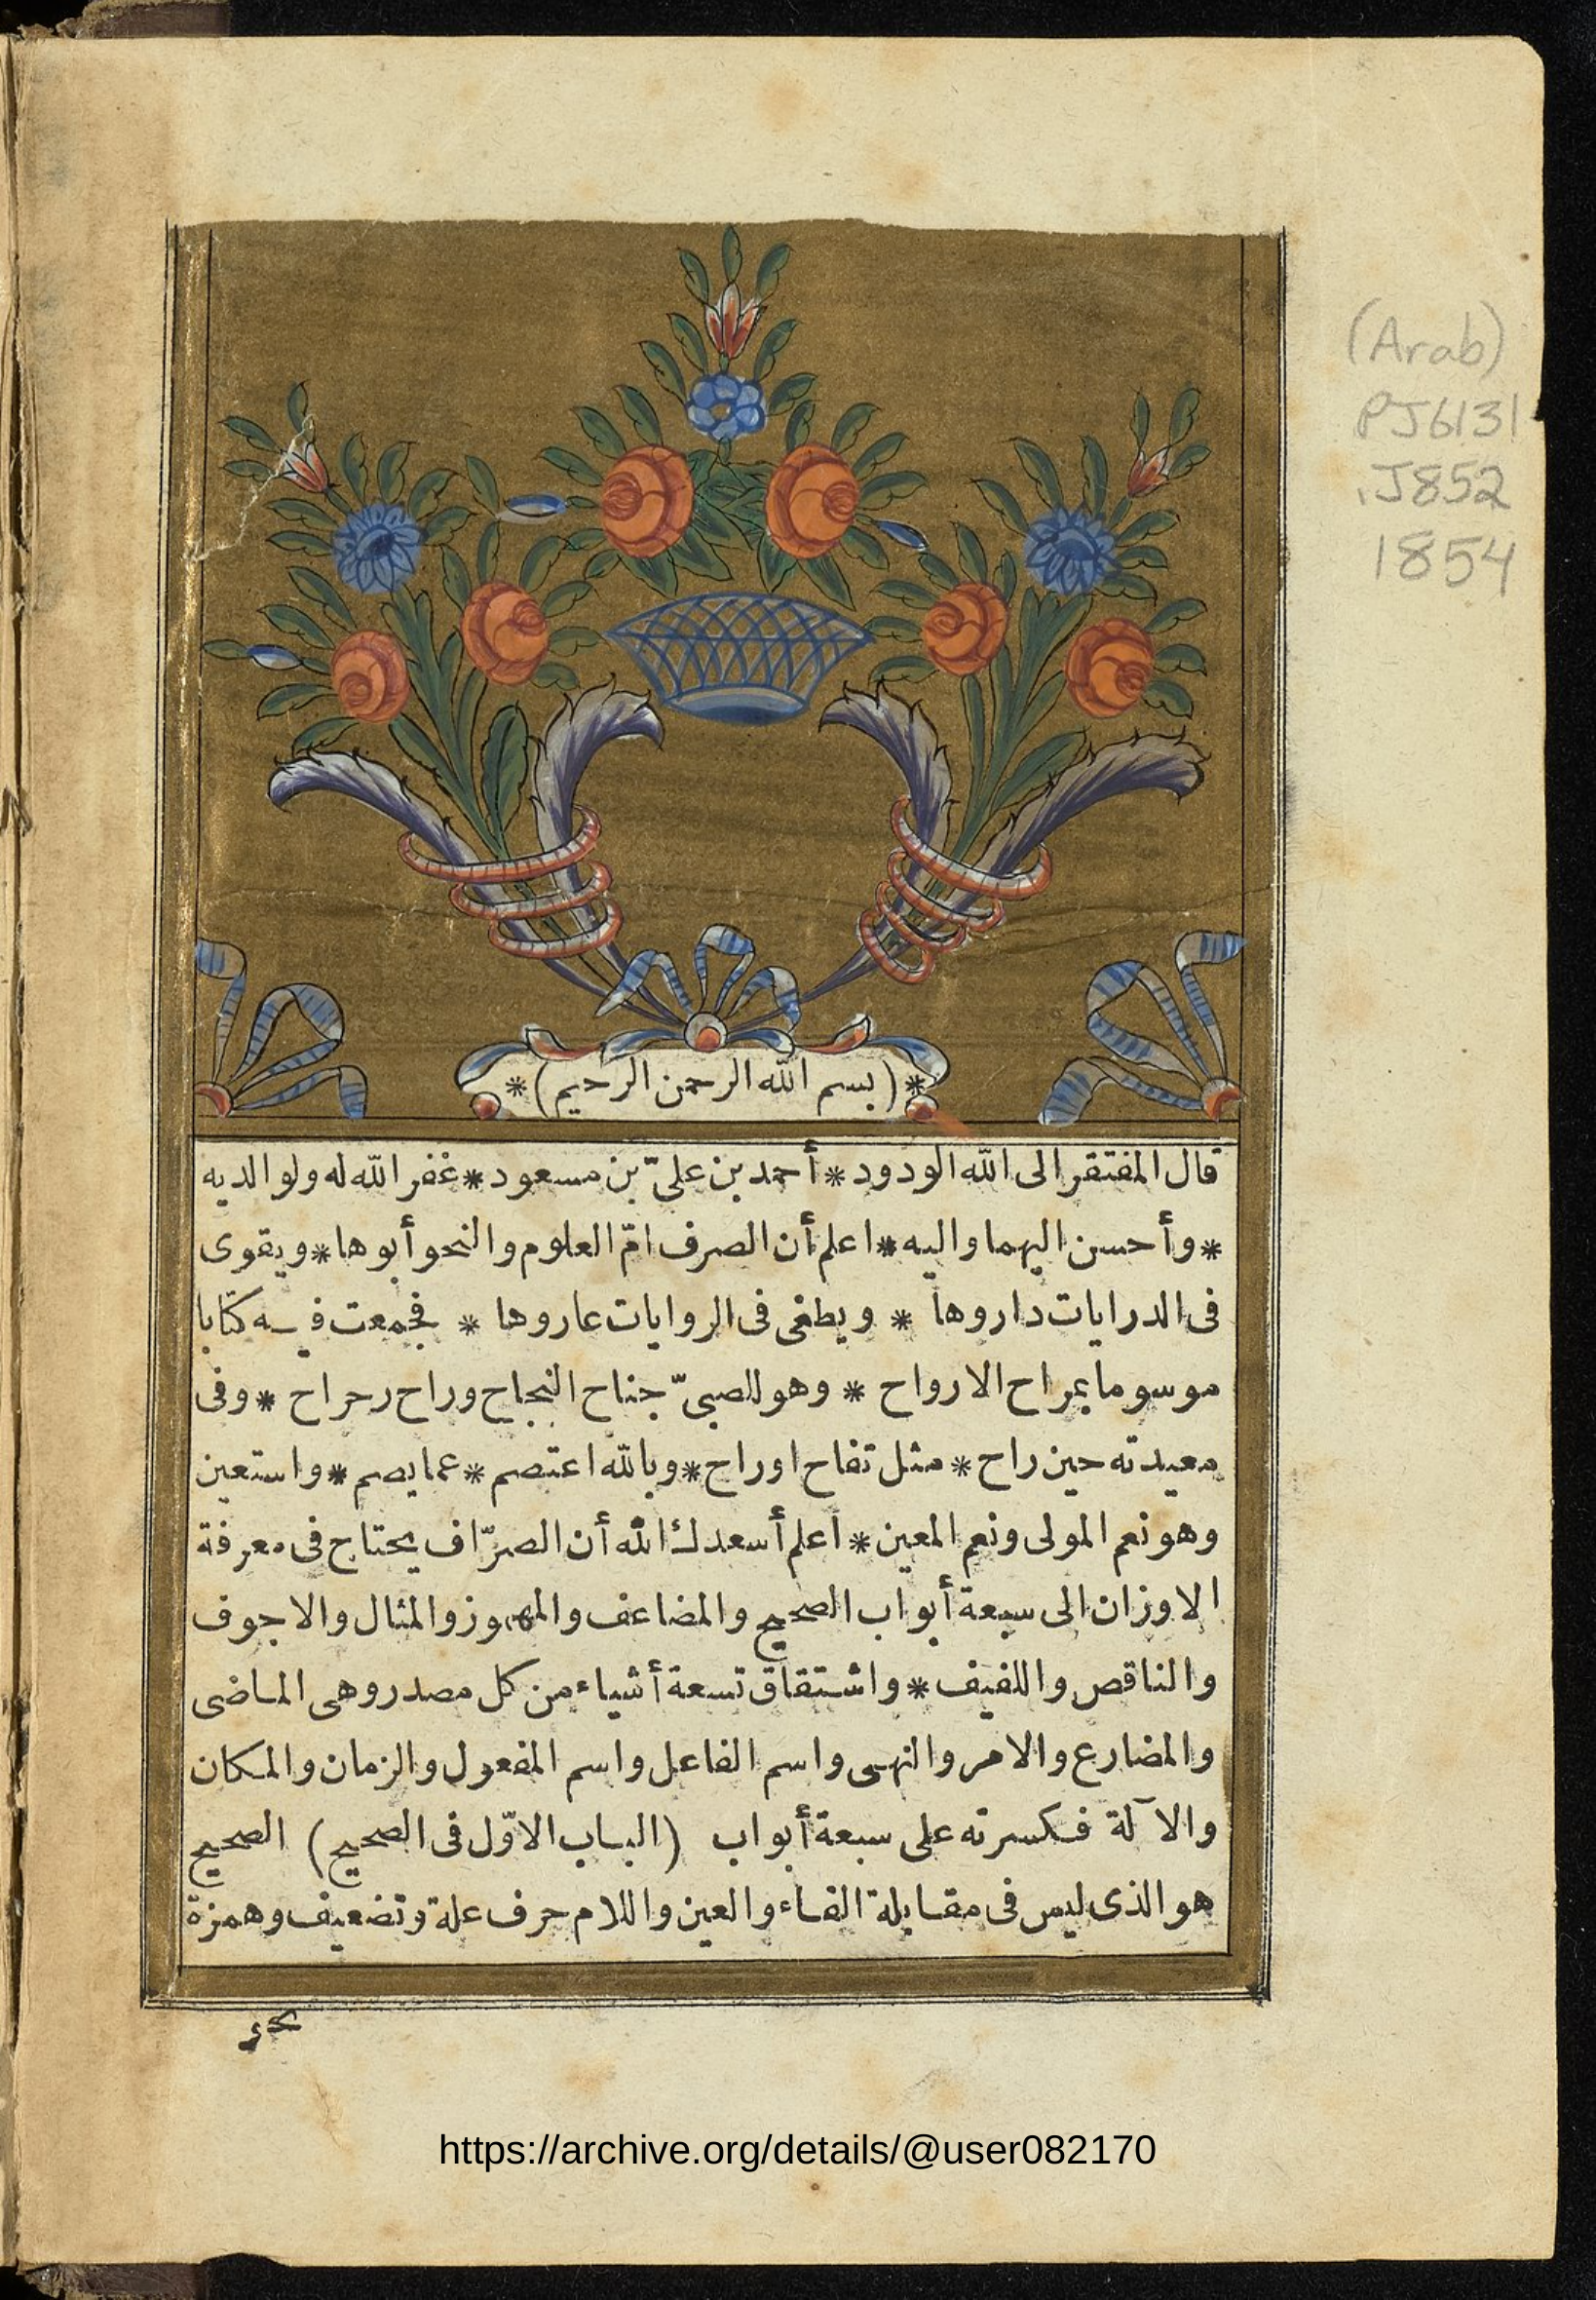 (Arab)
PJ6131
.J852
1854
*(بسم الله الرحمن الرحيم)*
قال المفتقر الى الله الودود * أحمد بن علىّ بن مسعود * غفر الله له ولوالديه
* وأحسن اليهما واليه * اعلم أن الصرف امّ العلوم والنحو أبوها * ويقوى
فى الدرايات داروها * ويطغى فى الروايات عاروها * فجمعت فيه كتابا
موسوما بمراح الارواح * وهو للصبىّ جناح النجاح وراح رحراح * وفى
معيدته حين راح * مثل تفاح او راح * وبالله اعتصم * عما يصم * واستعين
وهو نعم المولى ونعم المعين * اعلم أسعدك الله أن الصرّاف يحتاج فى معرفة
الاوزان الى سبعة أبواب الصحيح والمضاعف والمهموز والمثال والاجوف
والناقص واللفيف * واشتقاق تسعة أشياء من كل مصدر وهى الماضى
والمضارع والامر والنهى واسم الفاعل واسم المفعول والزمان والمكان
والآلة فكسرته على سبعة أبواب (الباب الاوّل فى الصحيح) الصحيح
هو الذى ليس فى مقابلة الفاء والعين واللام حرف علة وتضعيف وهمزة
نحو
https://archive.org/details/@user082170